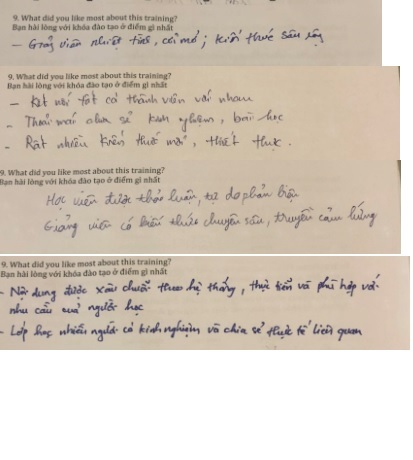 9. What did you like most about this training?
Bạn hài lòng với khóa đào tạo ở điểm gì nhất
- Giảng viên nhiệt tình, cởi mở; kiến thức sâu rộng
9. What did you like most about this training?
Bạn hài lòng với khóa đào tạo ở điểm gì nhất
- Kết nối tất cả thành viên với nhau
- Thoải mái chia sẻ kinh nghiệm, bài học
- Rất nhiều kiến thức mới, thiết thực.
9. What did you like most about this training?
Bạn hài lòng với khóa đào tạo ở điểm gì nhất
Học viên được thảo luận, tự do phản biện
Giảng viên có kiến thức chuyên sâu, truyền cảm hứng
9. What did you like most about this training?
Bạn hài lòng với khóa đào tạo ở điểm gì nhất
- Nội dung được xâu chuỗi theo hệ thống, thực tiễn và phù hợp với
nhu cầu của người học
- Lớp học nhiều người có kinh nghiệm và chia sẻ thực tế liên quan